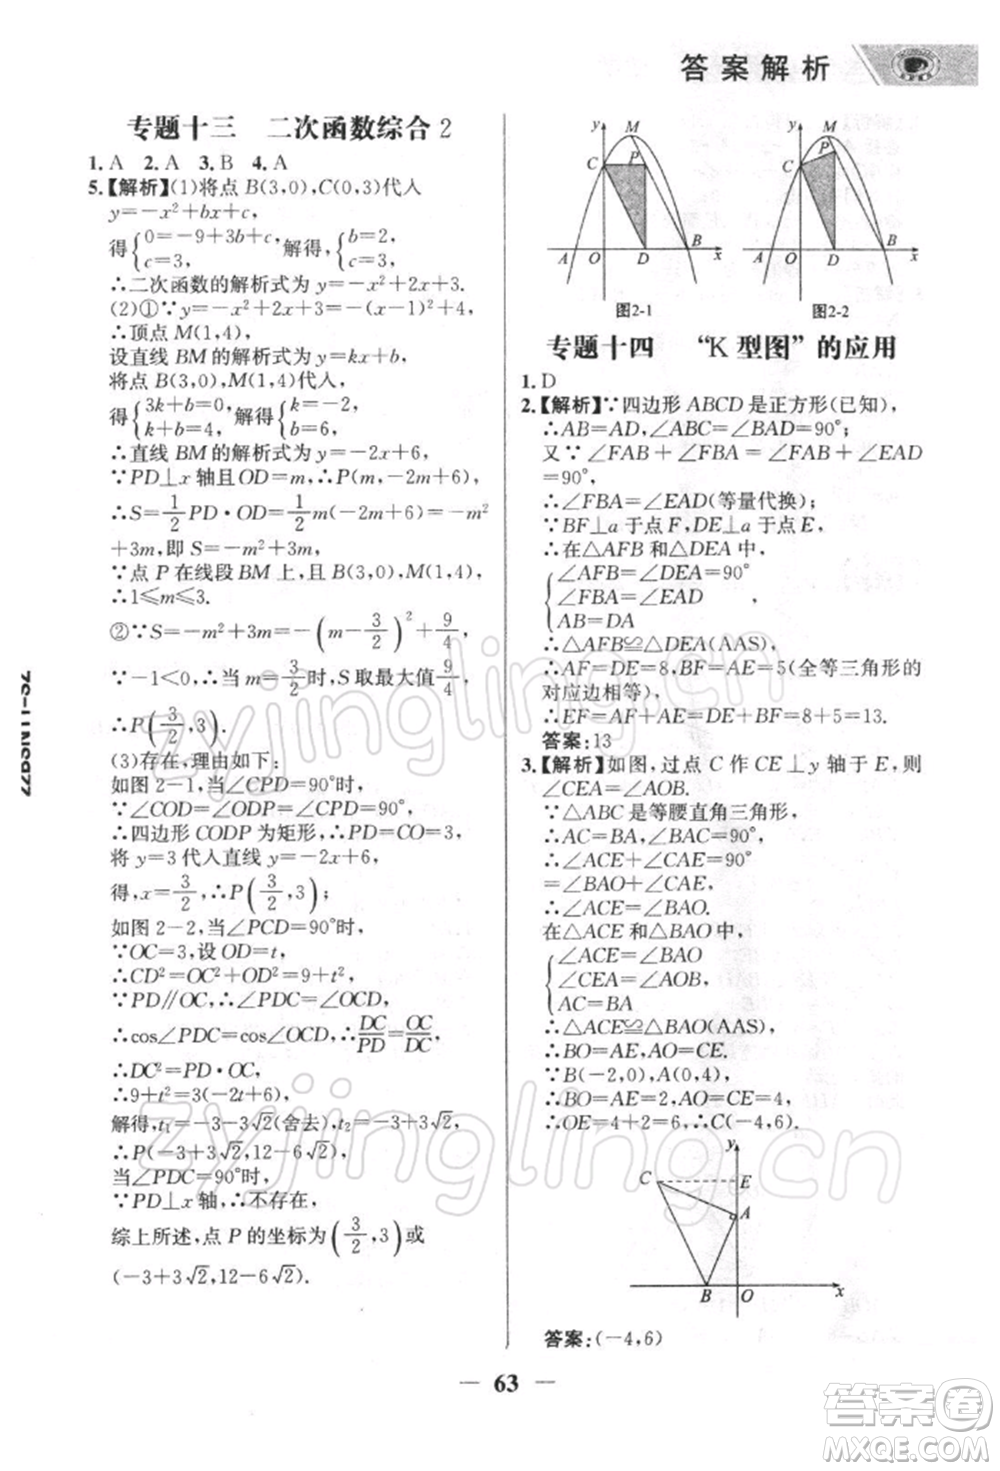 答案解析
专题十三 二次函数综合2
1. A 2. A 3. B 4. A
5.【解析】(1)将点 B(3,0),C(0,3)代入
y=-x²+bx+c,
得{0=-9+3b+c, c=3, 解得,{b=2, c=3,
∴二次函数的解析式为 y=-x²+2x+3.
(2)①∵y=-x²+2x+3=-(x-1)²+4,
∴顶点 M(1,4),
设直线 BM 的解析式为 y=kx+b,
将点 B(3,0),M(1,4)代入,
得{3k+b=0, k+b=4, 解得{k=-2, b=6,
∴直线 BM 的解析式为 y=-2x+6,
∵PD⊥x 轴且 OD=m,∴P(m,-2m+6),
∴S=1/2 PD·OD=1/2 m(-2m+6)=-m²
+3m,即 S=-m²+3m,
∵点 P 在线段 BM 上,且 B(3,0),M(1,4),
∴1≤m≤3.
②∵S=-m²+3m=-(m-3/2)²+9/4,
∵-1<0,∴当 m=3/2时,S 取最大值,
∴P(3/2,3).
(3)存在,理由如下:
如图 2-1,当∠CPD=90°时,
∵∠COD=∠ODP=∠CPD=90°,
∴四边形 CODP 为矩形,∴PD=CO=3,
将 y=3 代入直线 y=-2x+6,
得,x=3/2,∴P(3/2,3);
如图 2-2,当∠PCD=90°时,
∵OC=3,设 OD=t,
∴CD²=OC²+OD²=9+t²,
∵PD∥OC,∴∠PDC=∠OCD,
∴cos∠PDC=cos∠OCD,∴DC/PD=OC/DC,
∴DC²=PD·OC,
∴9+t²=3(-2t+6),
解得,t₁=-3-3√2(舍去),t₂=-3+3√2,
∴P(-3+3√2,12-6√2),
当∠PDC=90°时,
∵PD⊥x 轴,∴不存在,
综上所述,点 P 的坐标为(3/2,3)或
(-3+3√2,12-6√2).
y
M
C
P
A
O
D
B
x
图2-1
y
M
C
P
A
O
D
B
x
图2-2
专题十四 “K 型图”的应用
1. D
2.【解析】∵四边形 ABCD 是正方形(已知),
∴AB=AD,∠ABC=∠BAD=90°;
又∵∠FAB+∠FBA=∠FAB+∠EAD
=90°,
∴∠FBA=∠EAD(等量代换);
∵BF⊥a 于点 F,DE⊥a 于点 E,
∴在△AFB 和△DEA 中,
{∠AFB=∠DEA=90°
∠FBA=∠EAD ,
AB=DA
∴△AFB≌△DEA(AAS),
∴AF=DE=8,BF=AE=5(全等三角形的
对应边相等),
∴EF=AF+AE=DE+BF=8+5=13.
答案:13
3.【解析】如图,过点 C 作 CE⊥y 轴于 E,则
∠CEA=∠AOB.
∵△ABC 是等腰直角三角形,
∴AC=BA,∠BAC=90°,
∴∠ACE+∠CAE=90°
=∠BAO+∠CAE,
∴∠ACE=∠BAO.
在△ACE 和△BAO 中,
{∠ACE=∠BAO
∠CEA=∠AOB,
AC=BA
∴△ACE≌△BAO(AAS),
∴BO=AE,AO=CE.
∵B(-2,0),A(0,4),
∴BO=AE=2,AO=CE=4,
∴OE=4+2=6,∴C(-4,6).
y
C
E
A
B
O
x
答案:(-4,6)
— 63 —
zyjingling.cn
zyjingling.cn
答案圈
MXQE.COM